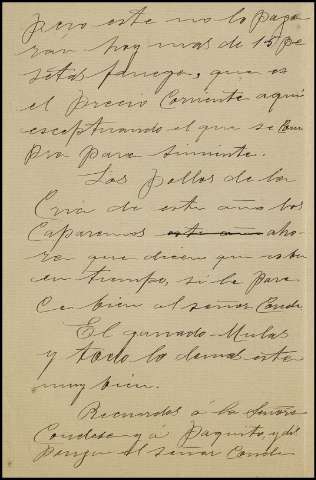 pero este no lo paga
ran hoy mas de 15 Pe
setas fanega, que es
el Precio Corriente aqui
esceptuando el que se Com
pra para simiente.
Los Pollos de la
Cria de este año los
Caparemos este año aho
ra que dicen que estan
en tiempo, si le Pare
Ce bien al señor Conde
El ganado Mulas
y todo lo demas esta
muy bien.
Recuerdos á la Señora
Condesa y á Paquito, y dis
ponga el señor Conde